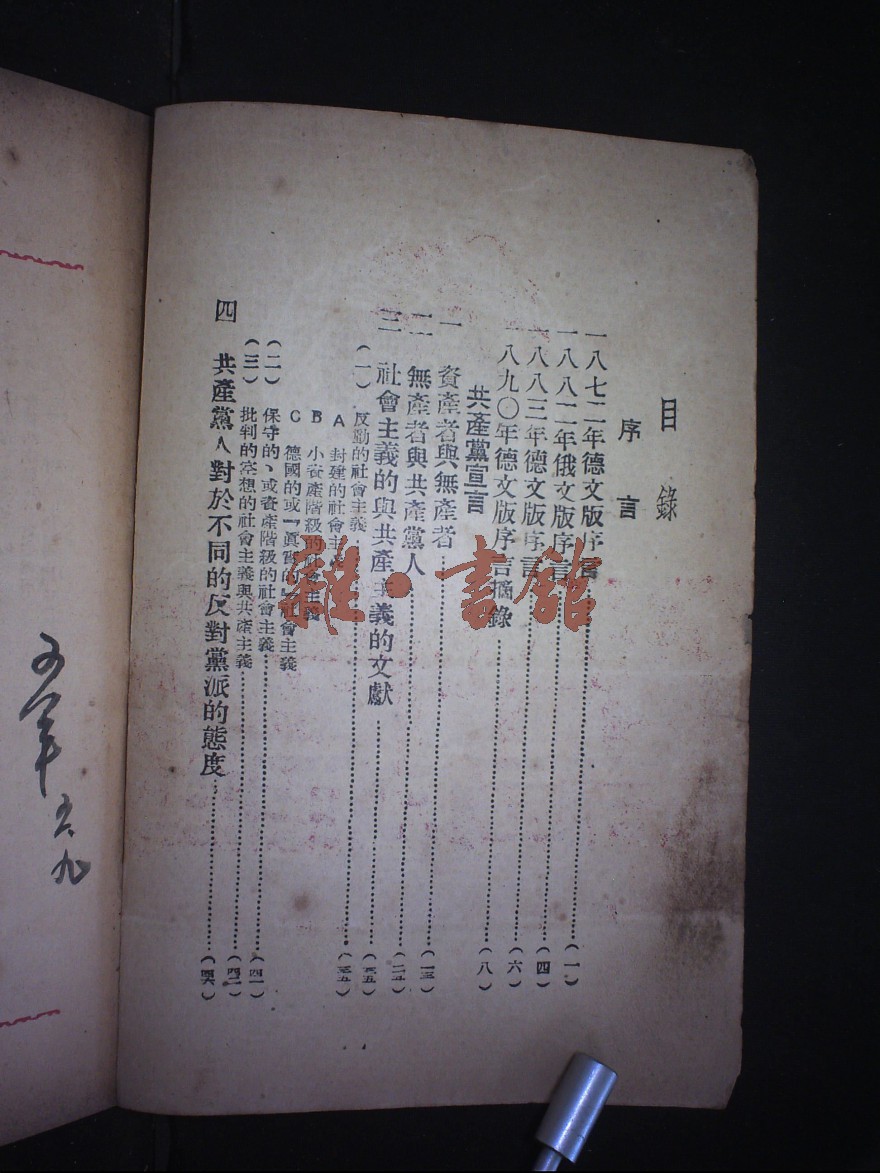 目錄
序言
一八七二年德文版序言……(一)
一八八二年俄文版序言……(四)
一八八三年德文版序言……(六)
一八九〇年德文版序言摘錄……(八)
共產黨宣言
一 資產者與無產者……(一三)
二 無產者與共產黨人……(二五)
三 社會主義的與共產主義的文獻……(三五)
(一) 反動的社會主義……(三五)
A 封建的社會主義
B 小資產階級的社會主義
C 德國的或「眞實的」社會主義
(二) 保守的、或資產階級的社會主義……(四一)
(三) 批判的空想的社會主義與共產主義……(四二)
四 共產黨人對於不同的反對黨派的態度……(四六)
雜·書館